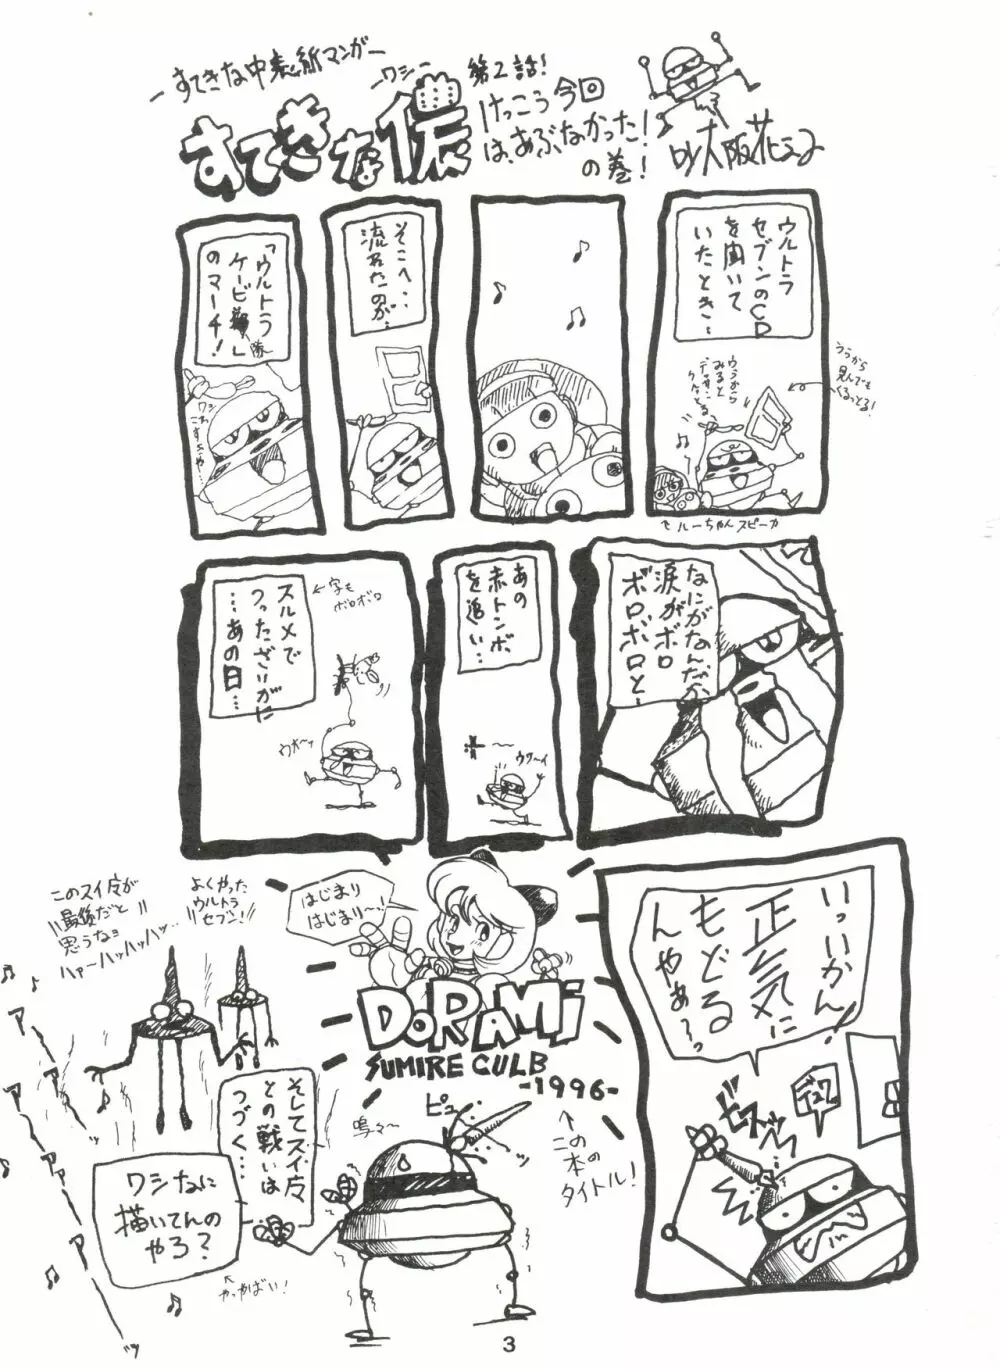 ―すてきな中表紙マンガ―
すてきな儂
―ワシ―
第2話！
けっこう今回
は、あぶなかった！
の巻！
砂大阪花ころ
ウルトラ
セブンのCD
を聞いて
いたとき…
ううから
見んでも
くるっとる！
ウラから
みると
デッサン
クルっとる
←ルーちゃんスピーカ
そこへ…
流れたのが…
「ウルトラ
ケービ隊」
のマーチ！
ワシ
これ
なにがなんだか
涙がボロ
ボロボロと…
あの
赤トンボ
を追い…
ウワ〜イ
スルメで
つったざりがに
…あの日…
←字も
ボロボロ
ウオ〜ッ
いっいかん！
正気に
もどる
んやぁ〜っ
ビスッ
デュワ
はじまり
はじまり〜！
DORAMI
SUMIRE CULB
-1996-
↑この本の
タイトル！
よくやった
ウルトラ
セブン！
このスイ広が
最後だと
思うなョ
ハァーハッハッハッ…
アァーッ
アァーッ
そしてスイ広
との戦いは
つづく…
ワシなに
描いてんの
やろ？
やっかばい！
ピュー
鳴々〜
3